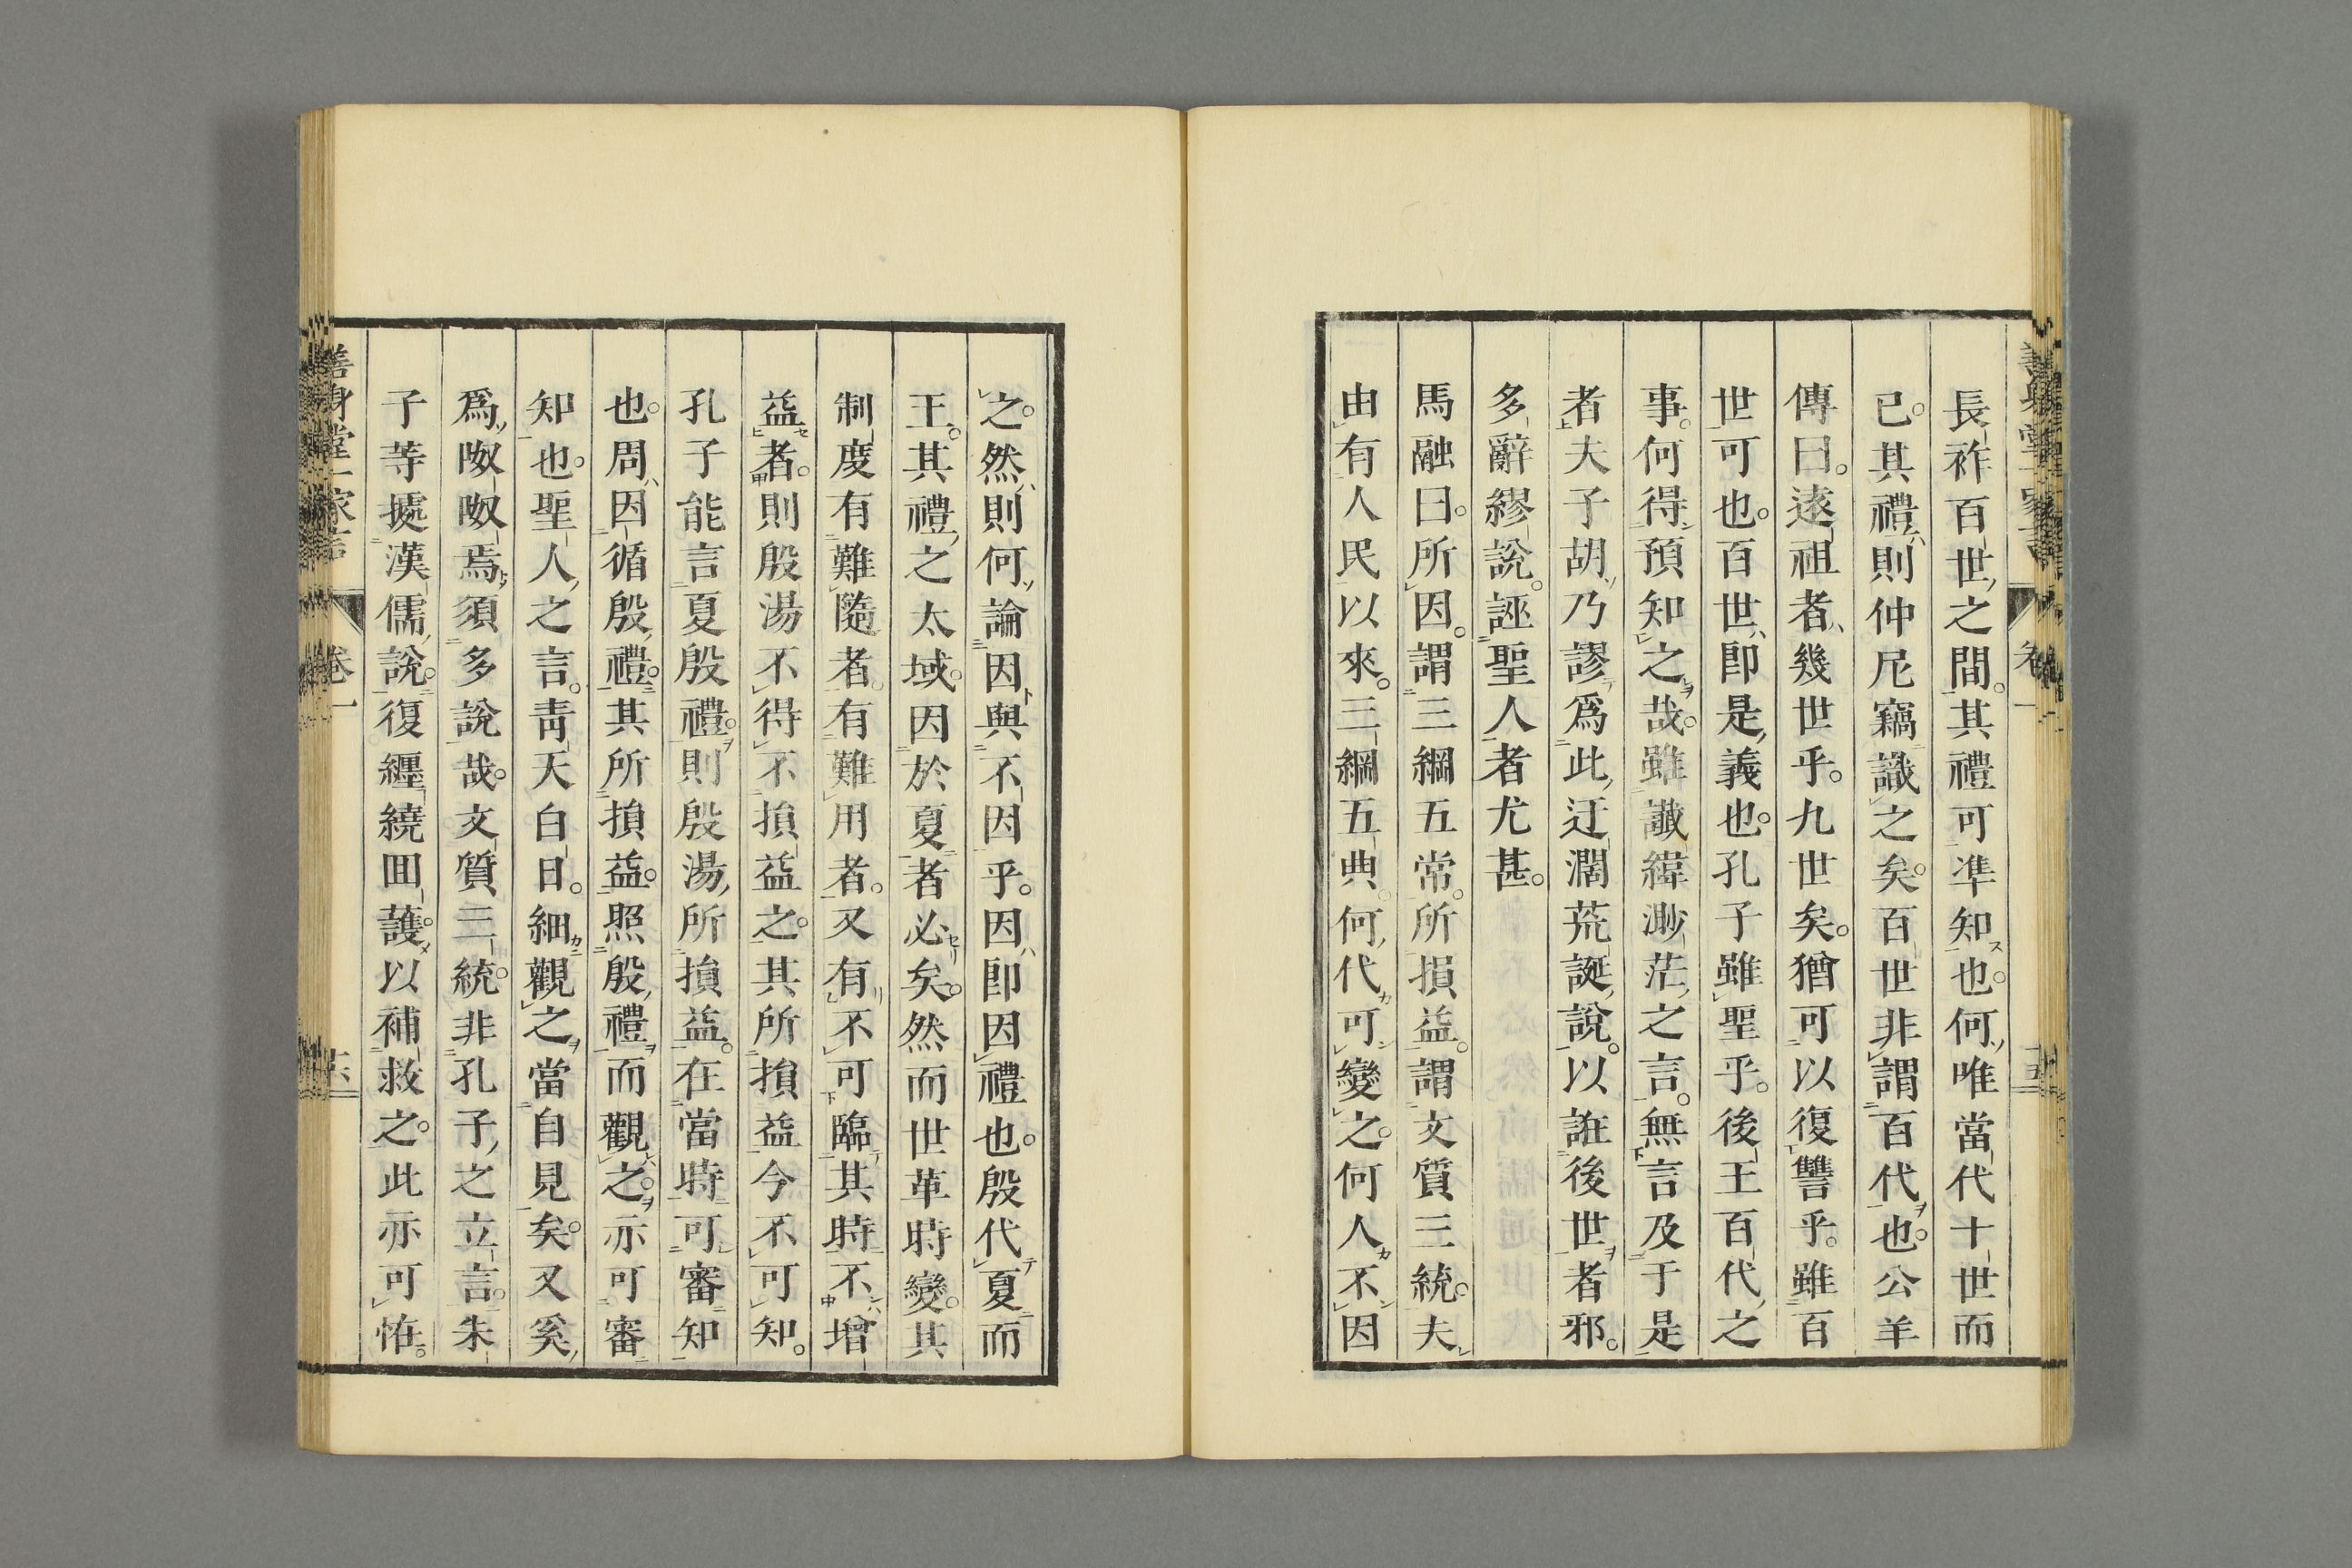 長祚百世之間。其禮可準知也。何唯當代十世而
已。其禮則仲尼竊識之矣。百世非謂百代也。公羊
傳曰。遠祖者幾世乎。九世矣。猶可以復讐乎。雖百
世可也。百世即是義也。孔子雖聖乎。後王百代之
事。何得預知之哉。雖讖緯渺茫之言。無言及于是
者夫子胡乃謬爲此迂濶荒誕說。以誑後世者邪。
多辭繆說。誣聖人者尤甚。
馬融曰。所因。謂三綱五常。所損益。謂文質三統。夫
由有人民以來。三綱五典。何代可變之。何人不因
之。然則何論因與不因乎。因即因禮也。殷代夏而
王。其禮之太域。因於夏者必矣。然而世革時變。其
制度有難隨者。有難用者。又有不可臨其時不增
益者。則殷湯不得不損益之。其所損益今不可知。
孔子能言夏殷禮。則殷湯所損益。在當時可審知
也。周因循殷禮。其所損益。照殷禮而觀之。亦可審
知也。聖人之言。靑天白日。細觀之當自見矣。又奚
爲呶呶焉須多說哉。文質三統。非孔子之立言。朱
子等據漢儒說。復纒繞回護。以補救之。此亦可恠。
善身堂一家言 卷一